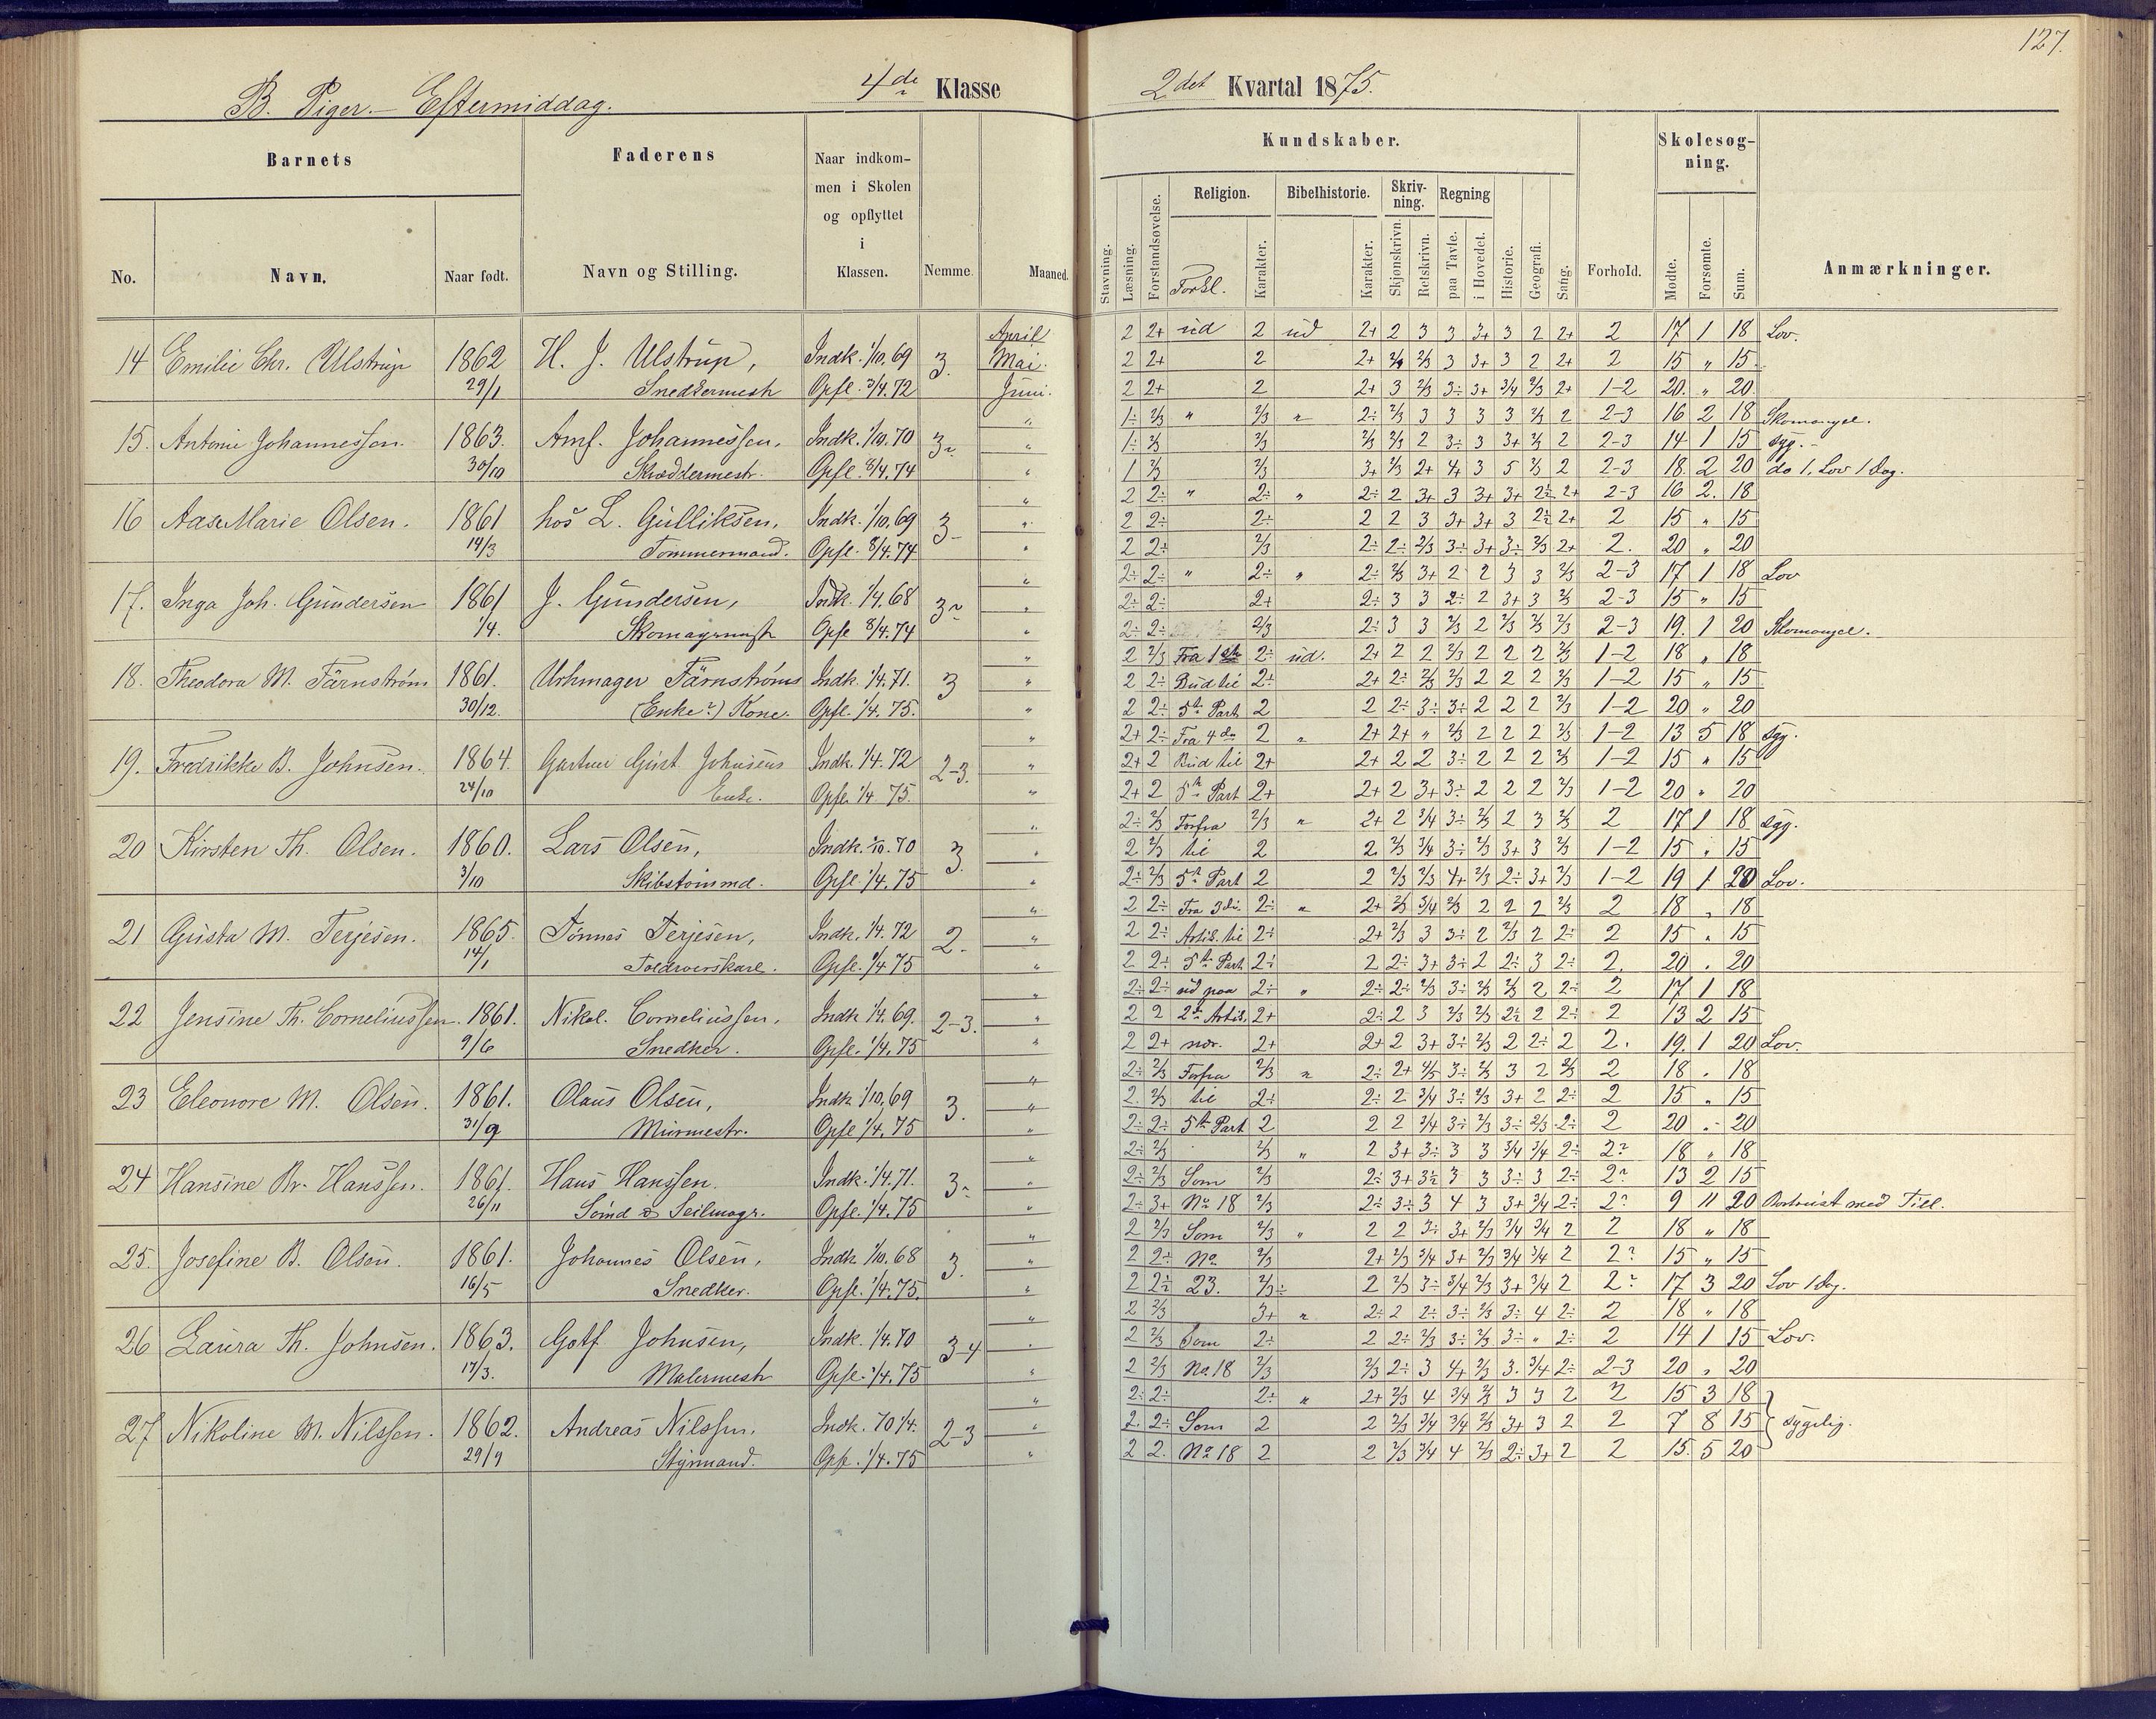 127.
B. Piger. - Eftermiddag. 4de Klasse 2det Kvartal 1875.
Barnets Faderens Naar indkommen i Skolen og opflyttet i Klassen. Nemme. Maaned.
No. Navn. Naar født. Navn og Stilling.
Kundskaber. Forhold. Skolesøgning. Anmærkninger.
Stavning. Læsning. Forstandsøvelse. Religion. Forkl. Karakter. Bibelhistorie. Karakter. Skrivning. Skjønskrivn. Retskrivn. Regning paa Tavle. i Hovedet. Historie. Geografi. Sang. Mødte. Forsømte. Sum.
14 Emilie Chr. Ulstrup 1862 29/1 H. J. Ulstrup, Snedkermestr Indk. 1/10, 69 Opfl. 3/4. 72 3. April Mai Juni.
2 2+ ud 2 ud 2+ 2 3 3 3+ 3 2 2+ 2 17 1 18 Lov.
2 2+ 2 2+ 2/3 3 3+ 3 2 2+ 2 15 „ 15
2 2+ 2 2+ 3 2/3 3÷ 3+ 3/4 2/3 2+ 1-2 20. „ 20
15. Antonie Johannessen. 1863. 30/10 Amf. Johannessen, Skræddermestr. Indk. 1/10. 70 Opfl. 8/4. 74
1÷ 2/3 „ 2/3 „ 2÷ 2/3 3 3 3 3 2/3 2 2-3 16 2 18 Skomangel.
1÷ 2/3 2/3 2/3 2/3 2 3÷ 3 3+ 2/3 2 2-3 14 1 15 syg.
1 2/3 2/3 3+ 2/3 2+ 4+ 3 5 2/3 2 2-3 18. 2 20 do 1, Lov 1 Dag.
16 Aase Marie Olsen. 1861 14/3 hos L. Gulliksen, Tømmermand. Indk. 1/10, 69 Opfl. 8/4. 74 3-
2 2÷ „ 2÷ „ 2÷ 2 3+ 3 3+ 3+ 2÷ 2+ 2-3 16 2. 18
2 2÷ 2÷ 2 2 3 3+ 3+ 3 2÷ 2+ 2 15 „ 15
2 2÷ 2/3 2÷ 2÷ 2/3 3÷ 3+ 3÷ 2/3 2+ 2. 20 „ 20
17. Inga Joh. Gundersen 1861 1/4. J. Gundersen, Skomagrmestr Indk. 1/4. 68 Opfl 8/4. 74
2÷ 2÷ „ 2÷ „ 2÷ 2/3 3+ 2 2 3 3 2/3 2-3 17 1 18 Lov
2÷ 2÷ 2+ 2÷ 3 3 2÷ 2 3+ 3 2/3 2-3 15 „ 15
2÷ 2÷ 2/3 2÷ 3 3 2/3 2 2/3 2/3 2/3 2-3 19. 1 20 Skomangel.
18. Theodora M. Färnstrøm 1861. 30/12. Urhmager Färnstrøms (Enke?) Kone. Indk. 1/4. 71. Opfl. 1/4. 75. 3
2 2/3 Fra 1ste 2÷ ud. 2+ 2 2 2/3 2 2 2 2/3 1-2 18 „ 18
2 2÷ Bud til 2÷ 2+ 2÷ 2/3 2/3 2 2 2 2/3 1-2 15 „ 15
2 2÷ 5te Part 2 2 2÷ 3÷ 3÷ 2 2 2 2/3 1-2 20 „ 20
19. Fredrikke B. Johnsen. 1864. 24/10 Gartner Gust Johnsens Enke. Indk. 1/4. 72 Opfl. 1/4 75. 2-3.
2+ 2÷ Fra 4de 2 „ 2+ 2+ „ 2/3 2 2 2 2/3 1-2 13 5 18 Syg.
2+ 2 Bud til 2+ 2+ 2 2 3÷ 2 2 2 2/3 1-2 15 „ 15
2+ 2 5te Part 2+ 2+ 2 3+ 3÷ 2 2 2 2/3 1-2 20 „ 20
20 Kirsten Th. Olsen. 1860. 3/10 Lars Olsen, Skibstømmd. Indk. 1/10. 70 Opfl. 1/4. 75 3.
2÷ 2/3 Forfra 2/3 „ 2+ 2 3/4 3÷ 2/3 2 3 2/3 2 17 1 18 syg.
2 2/3 til 2 2 2/3 3/4 3÷ 2/3 3+ 3 2/3 1-2 15 „ 15
2÷ 2/3 5te Part 2 2 2/3 2/3 4+ 2/3 2÷ 3+ 2/3 1-2 19 1 20 Lov.
21 Gusta M. Terjesen. 1865. 14/1 Tønnes Terjesen, Indk. 1/4. 72 Opfl. 1/4 75 2.
2 2÷ Fra 3die 2÷ „ 2+ 2/3 3/4 2/3 2 2 2 2/3 2 18 „ 18
2 2÷ Artik. til 2÷ 2+ 2/3 3 3÷ 2 2/3 2 2÷ 2 15 „ 15
2 2÷ 5te Part 2÷ 2 2÷ 3+ 3÷ 2 2÷ 3 2÷ 2. 20 „ 20
22 Jensine Th. Corneliussen. 1861. 9/6 Nikol. Corneliussen, Snedker. Indk 1/4. 69. Opfl. 1/4. 75 2-3.
2÷ 2÷ ud paa 2÷ „ 2÷ 2÷ 2/3 3÷ 2/3 2/3 2 2÷ 2 17 1 18
2 2 2de Artik. 2+ 2÷ 2 3 2/3 2/3 2÷ 2 2÷ 2 13 2 15
2 2+ nær. 2+ 2+ 2 3+ 3÷ 2/3 2 2÷ 2 2. 19. 1 20 Lov.
23 Eleonore M. Olsen. 1861. 31/9 Olaus Olsen, Murmestr. Indk 1/10, 69 Opfl 1/4. 75 3.
2÷ 2/3 Forfra 2/3 „ 2÷ 2+ 4/5 3÷ 2/3 3 2 2/3 2 18 „ 18
2. 2/3 til 2÷ 2÷ 2 3/4 3÷ 2/3 3+ 2 2÷ 2 15 „ 15
2÷ 2÷ 5te Part 2 2 2 3/4 3÷ 2/3 3÷ 2/3 2÷ 2 20 „ 20
24 Hansine Br. Hanssen. 1861. 26/11 Hans Hanssen. Sømd & Seilmagr. Indk. 1/4. 71. Opfl. 1/4. 75
2÷ 2/3 2/3 „ 2 3+ 3÷ 3 3 3/4 3/4 2÷ 2? 18 „ 18
2÷ 2/3 Som 2/3 2÷ 3+ 3÷ 3 3 3÷ 3 2÷ 2? 13 2 15
2÷ 3+ No 18 2/3 2÷ 3÷ 3 4 3 3+ 3/4 2÷ 2? 9 11 20 Bortreist med Till.
25. Josefine B. Olsen. 1861. 16/5 Johannes Olsen, Snedker. Indk 1/10. 68 Opfl. 1/4. 75. 3.
2 2/3 Som 2/3 „ 2 2 3÷ 3+ 2/3 3/4 3/4 2 2 18 „ 18
2 2÷ No. 2/3 2+ 2/3 3/4 3+ 2/3 3/4 3/4 2 2? 15 „ 15
2 2÷ 23. 2/3÷ 2 2/3 3÷ 3/4 2/3 3+ 3/4 2 2? 17 3 20 Lov 1 Dag.
26 Laura Th. Johnsen. 1863. 17/3. Gotf Johnsen, Malermestr Indk. 1/4. 70 Opfl. 1/4. 75 3-4
2 2/3 3+ „ 2÷ 2 2÷ 3÷ 2/3 3÷ 4 2÷ 2 18 „ 18
2 2/3 Som 2÷ 2 2÷ 2/3 3÷ 2/3 3÷ „ 2÷ 2 14 1 15 Lov.
2 2/3 No. 18 2/3 2/3 2÷ 3 4+ 2/3 3. 3/4 2÷ 2-3 20 „ 20
27 Nikoline M. Nilssen. 1862. 29/9 Andreas Nilssen, Styrmand. Indk. 70 1/4. Opfl. 1/4. 75 2-3
2÷ 2÷ 2÷ „ 2+ 2/3 4 3/4 2/3 3 3 2 2 15 3 18
2. 2÷ Som 2 2 2/3 3/4 3/4 2/3 3+ 3 2 2 7 8 15 sygelig.
2 2. No 18 2 2 2/3 3/4 4 2/3 2÷ 3+ 2 2 15. 5 20